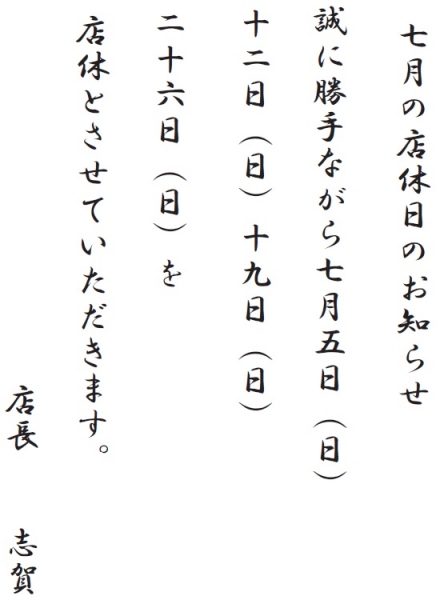 七月の店休日のお知らせ
誠に勝手ながら七月五日（日）
十二日（日）十九日（日）
二十六日（日）を
店休とさせていただきます。
店長　志賀